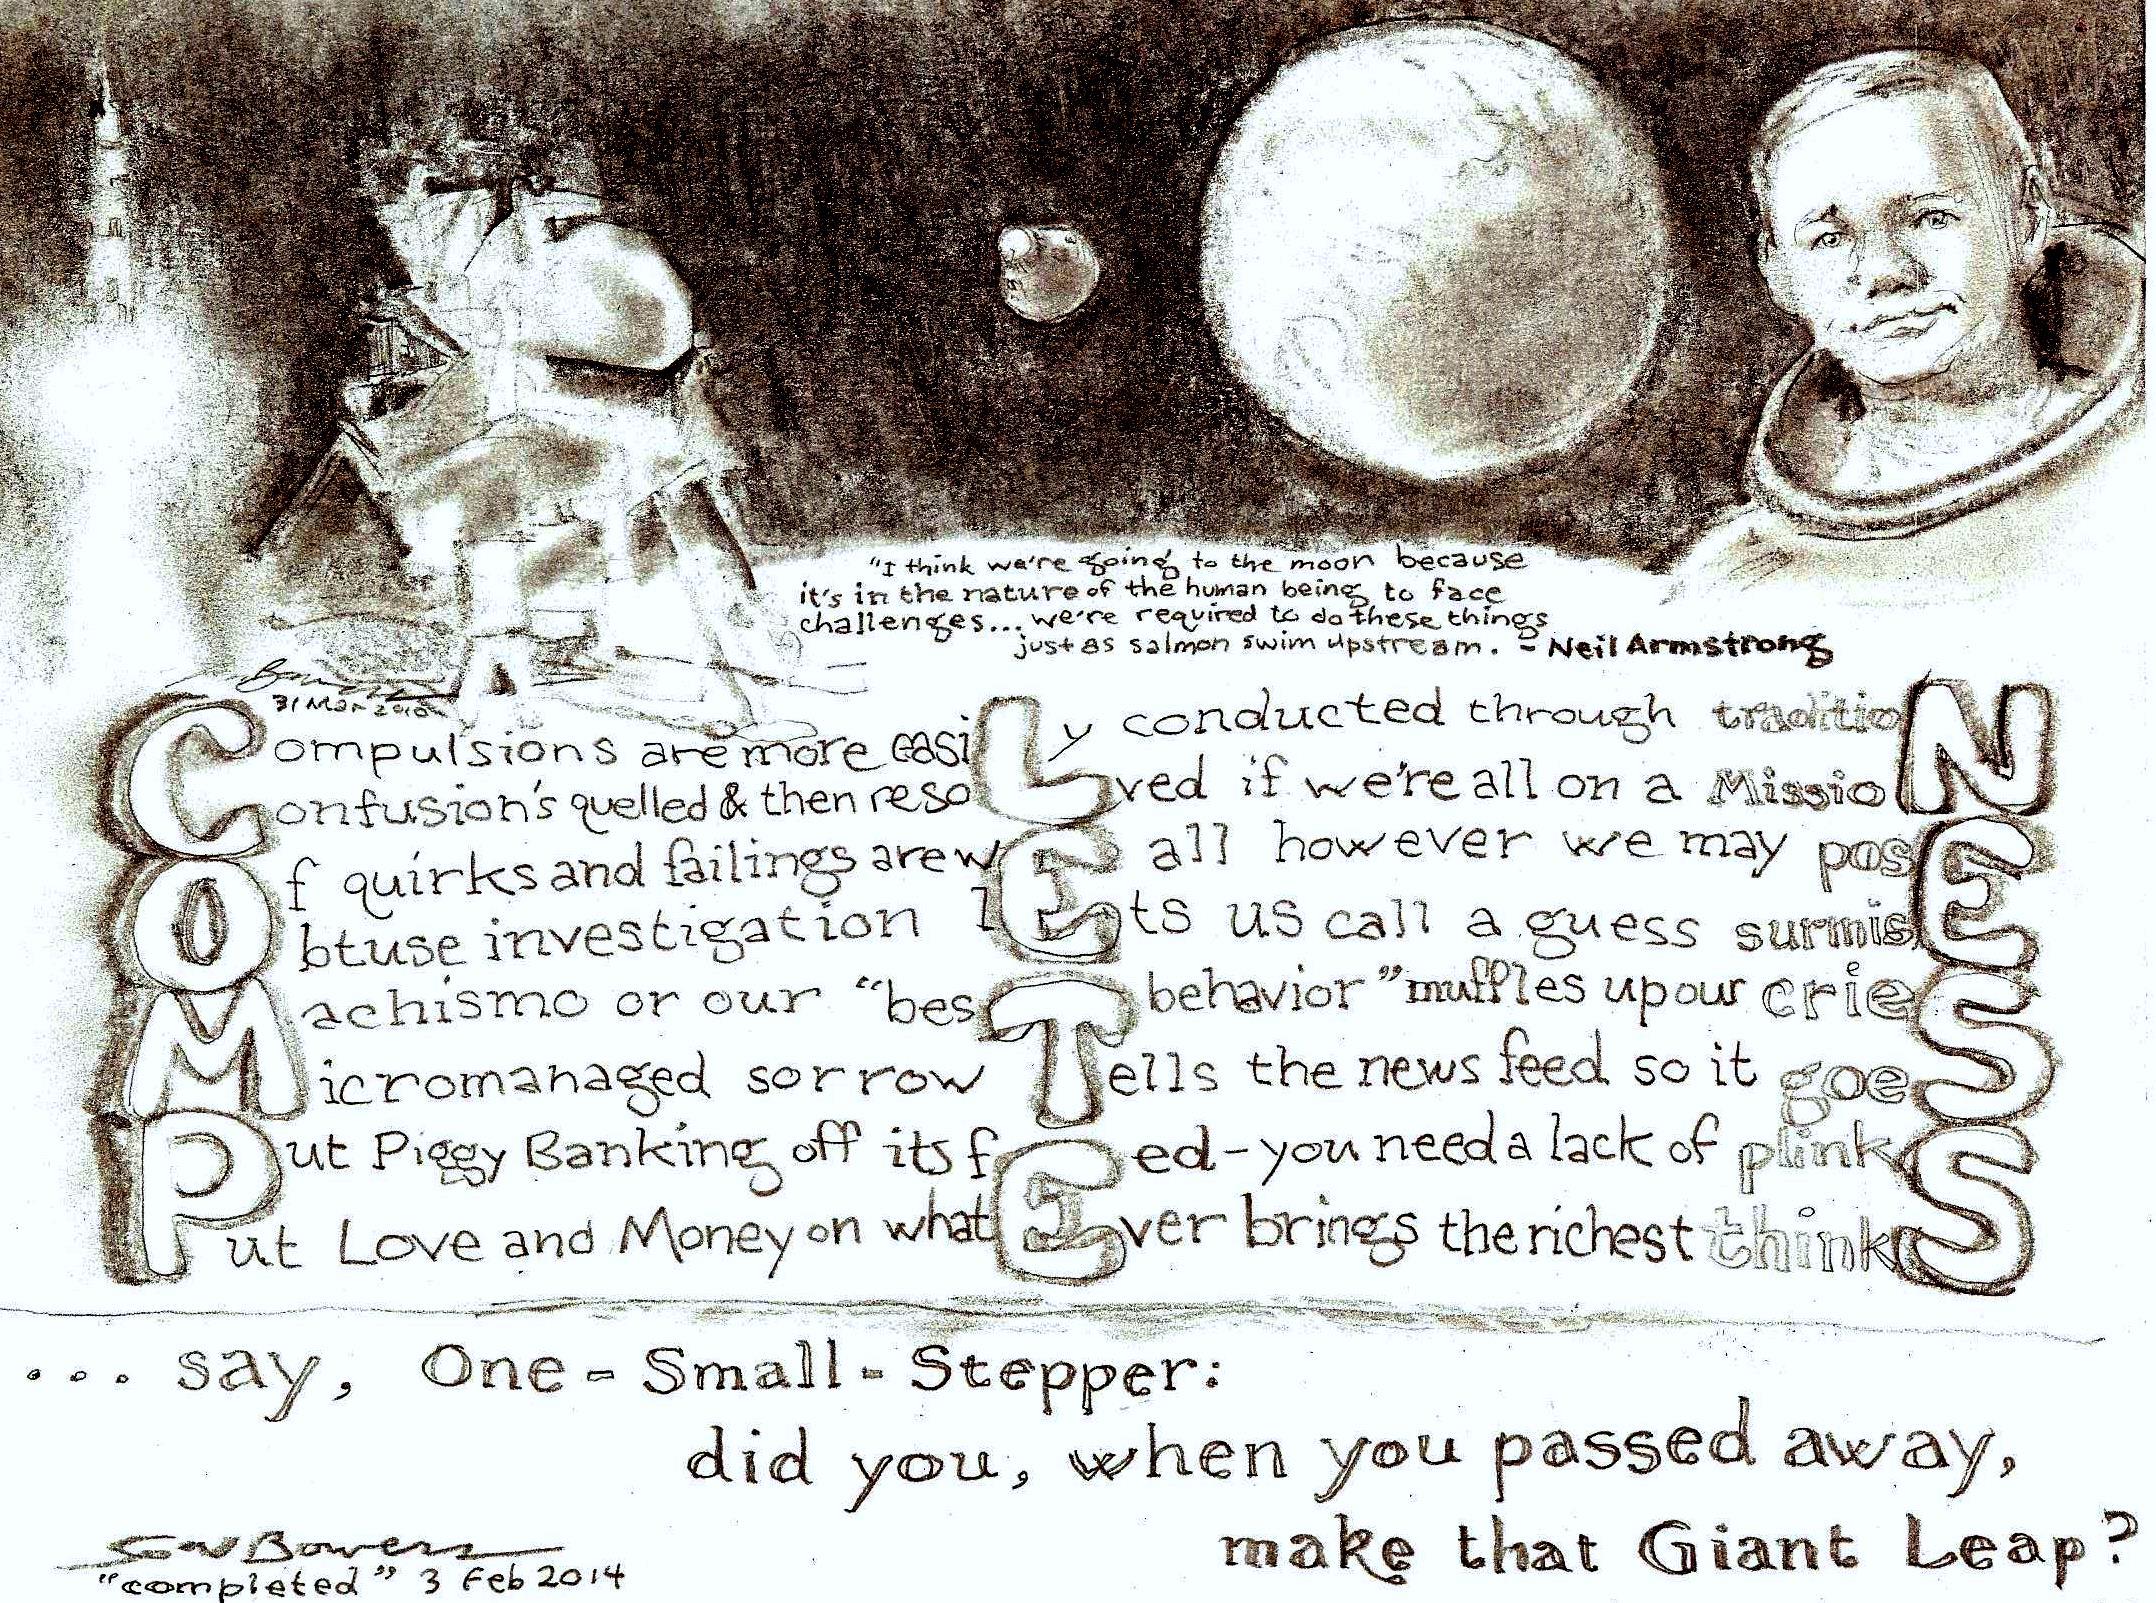 "I think we're going to the moon because
it's in the nature of the human being to face
challenges... we're required to do these things
just as salmon swim upstream. - Neil Armstrong
31 Mar 2010
Compulsions are more easiLy conducted through traditioN
Confusion's quelled & then resoLved if we're all on a MissioN
Of quirks and failings are wE all however we may posE
Obtuse investigation lEts us call a guess surmisE
Machismo or our "besT behavior" muffles up our crieS
Micromanaged sorrow Tells the news feed so it goeS
Put Piggy Banking off its fEed - you need a lack of plinkS
Put Love and Money on whatEver brings the richest thinkS
... say, One-Small-Stepper:
did you, when you passed away,
make that Giant Leap?
Bowers
"completed" 3 Feb 2014